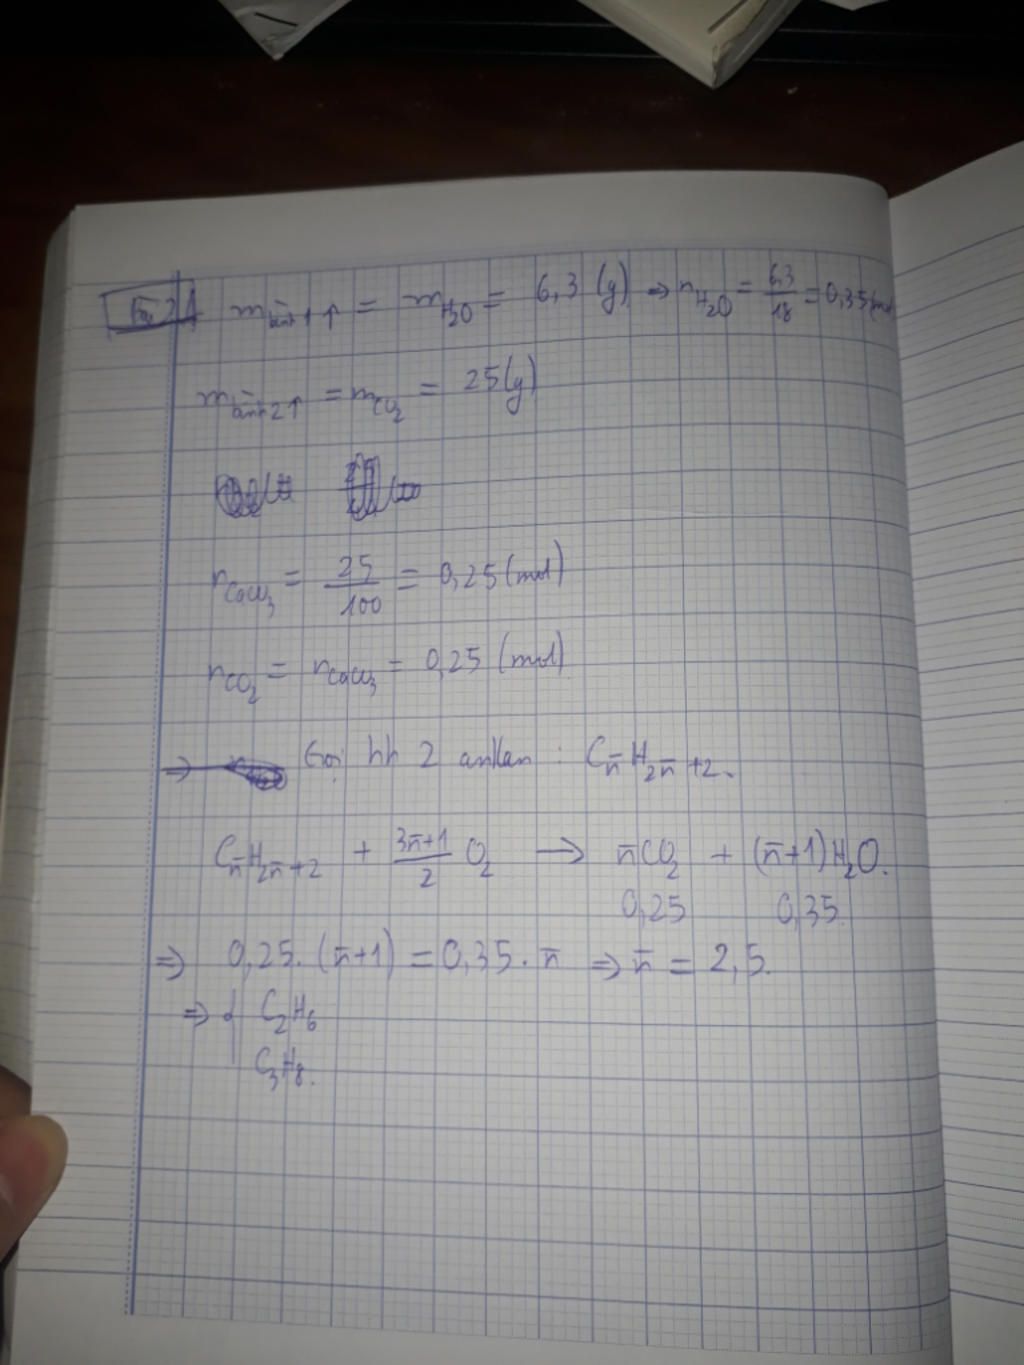 Bài 21 m bình 1 ↑ = mH₂O = 6,3 (g) ⇒ nH₂O = 6,3/18 = 0,35 (mol)
m bình 2 ↑ = mCO₂ = 25 (g)
nCaCO₃ = 25/100 = 0,25 (mol)
nCO₂ = nCaCO₃ = 0,25 (mol)
⇒ Gọi hh 2 ankan : Cn̄H2n̄+2.
Cn̄H2n̄+2 + (3n̄+1)/2 O₂ → n̄CO₂ + (n̄+1)H₂O.
0,25 0,35
⇒ 0,25.(n̄+1) = 0,35.n̄ ⇒ n̄ = 2,5.
⇒ { C₂H₆
C₃H₈.